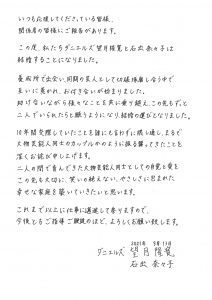 いつも応援してくださっている皆様、
関係者の皆様にご報告があります。
この度、私たちダニエルズ 望月隆寛と石出奈々子は
結婚することになりました。
養成所で出会い、同期の芸人として切磋琢磨し合う中で
互いに惹かれ、お付き合いが始まりました。
助け合いながら様々なことを共に乗り越え、この先もずっと
二人でいられたらと願うようになり、結婚の運びとなりました。
10年間交際していたことを誰にも言わずに隠し通し、まるで
大物芸能人同士のカップルかのように振る舞ってきたことを
深くお詫び申し上げます。
二人の間で育んできた大物芸能人同士としての自覚と愛を
この先も大切に、笑いの絶えない、やさしさに包まれた
幸せな家庭を築いていきたいと思います。
これまで以上に仕事に邁進して参りますので、
今後ともご指導ご鞭撻のほど、よろしくお願い致します。
2021年 9月13日
ダニエルズ 望月 隆寛
石出 奈々子